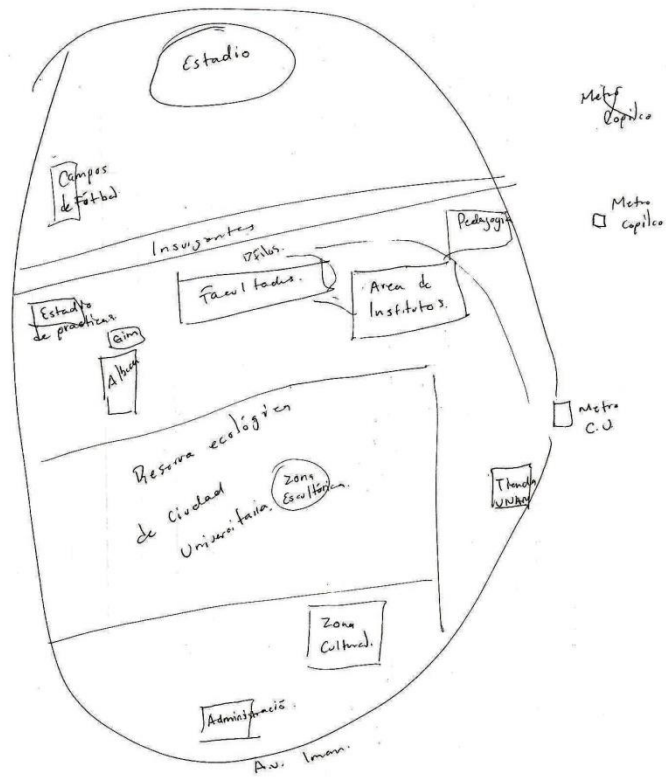 Estadio
Metro
Copilco
Campos
de Fútbol
Metro
Copilco
Pedagogía
Insurgentes
Filos.
Facultades.
Area de
Institutos.
Estadio
de practicas
Gim
Alberca
Metro
C.U.
Reserva ecológica
de Ciudad
Universitaria.
Zona
Escultórica.
Tienda
UNAM
Zona
Cultural.
Administració
Av. Iman.